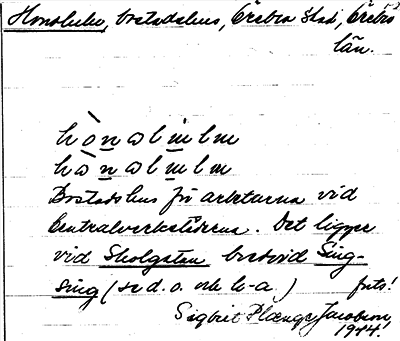 Honolulu, bostadshus, Örebro stad, Örebro
län.
Bostadshus för arbetarna vid
Centralverkstäderna. Det ligger
vid Skolgatan bredvid Sing-
Sing (se d. o. och k-a.) forts!
Sigbrit Plænge Jacobson,
1944.